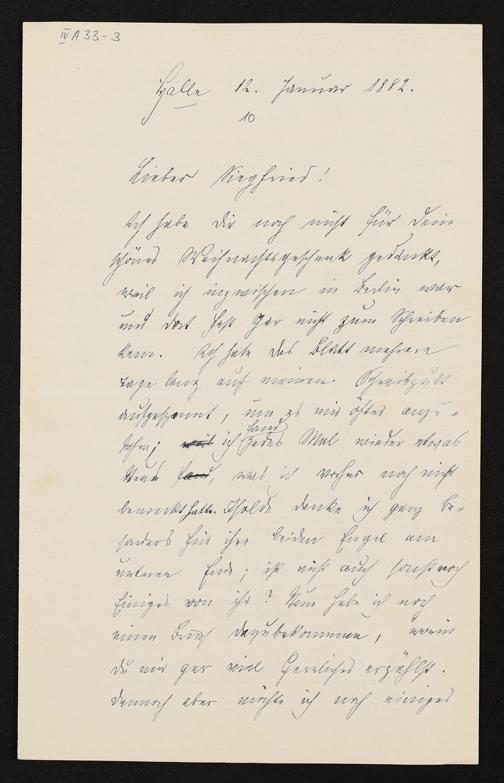 IV A 33-3
Halle 12. Januar 1882.
10
Lieber Siegfried!
Ich habe Dir noch nicht für Dein
schönes Weihnachtsgeschenk gedankt,
weil ich inzwischen in Berlin war
und dort fast gar nicht zum Schreiben
kam. Ich habe das Blatt mehrere
Tage lang auf meinem Schreibpult
aufgespannt, um es mir öfters anzu=
sehen; weil ich fand jedes Mal wieder etwas
Neues fand, was ich vorher noch nicht
bemerkt hatte. Isolde danke ich ganz be=
sonders für ihre beiden Engel am
unteren Ende; ist nicht auch sonst noch
Einiges von ihr? Nun habe ich noch
einen Brief dazubekommen, worin
du mir gar viel Herrliches erzählst.
Dennoch aber möchte ich noch einiges